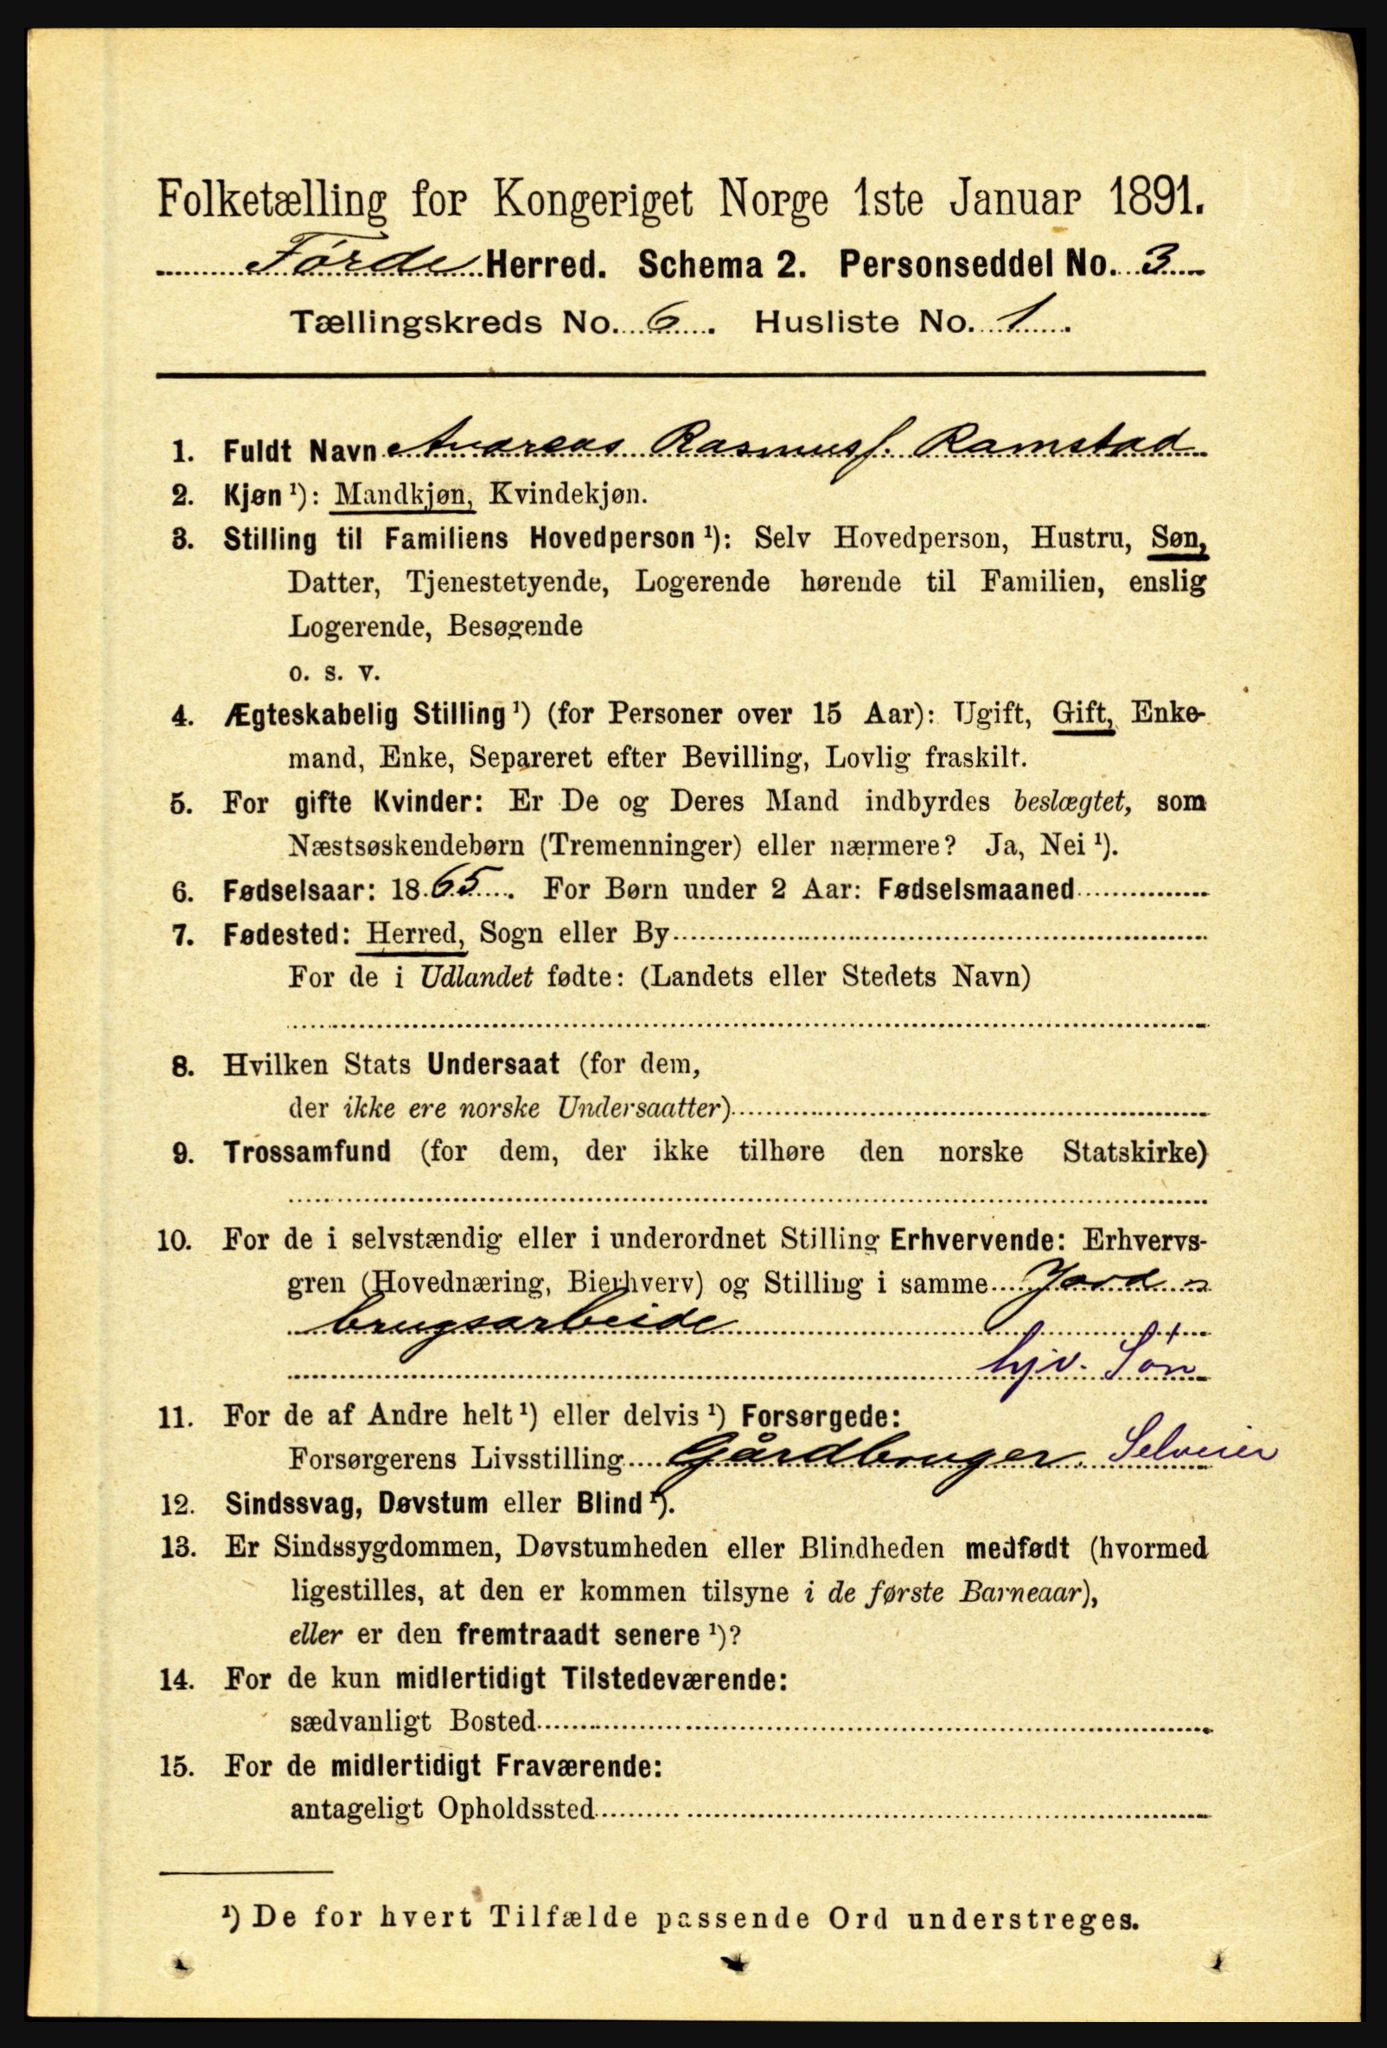 Folketælling for Kongeriget Norge 1ste Januar 1891.
Førde Herred. Schema 2. Personseddel No. 3
Tællingskreds No. 6. Husliste No. 1.
1. Fuldt Navn Andreas Rasmusf. Ramstad
2. Kjøn ¹): Mandkjøn, Kvindekjøn.
3. Stilling til Familiens Hovedperson ¹): Selv Hovedperson, Hustru, Søn,
Datter, Tjenestetyende, Logerende hørende til Familien, enslig
Logerende, Besøgende
o. s. v.
4. Ægteskabelig Stilling ¹) (for Personer over 15 Aar): Ugift, Gift, Enke-
mand, Enke, Separeret efter Bevilling, Lovlig fraskilt.
5. For gifte Kvinder: Er De og Deres Mand indbyrdes beslægtet, som
Næstsøskendebørn (Tremenninger) eller nærmere? Ja, Nei ¹).
6. Fødselsaar: 1865. For Børn under 2 Aar: Fødselsmaaned
7. Fødested: Herred, Sogn eller By
For de i Udlandet fødte: (Landets eller Stedets Navn)
8. Hvilken Stats Undersaat (for dem,
der ikke ere norske Undersaatter)
9. Trossamfund (for dem, der ikke tilhøre den norske Statskirke)
10. For de i selvstændig eller i underordnet Stilling Erhvervende: Erhvervs-
gren (Hovednæring, Bierhverv) og Stilling i samme Jord-
brugsarbeide
hjv. Søn
11. For de af Andre helt ¹) eller delvis ¹) Forsørgede:
Forsørgerens Livsstilling Gårdbruger. Selveier
12. Sindssvag, Døvstum eller Blind ¹).
13. Er Sindssygdommen, Døvstumheden eller Blindheden medfødt (hvormed
ligestilles, at den er kommen tilsyne i de første Barneaar),
eller er den fremtraadt senere ¹)?
14. For de kun midlertidigt Tilstedeværende:
sædvanligt Bosted
15. For de midlertidigt Fraværende:
antageligt Opholdssted
¹) De for hvert Tilfælde passende Ord understreges.